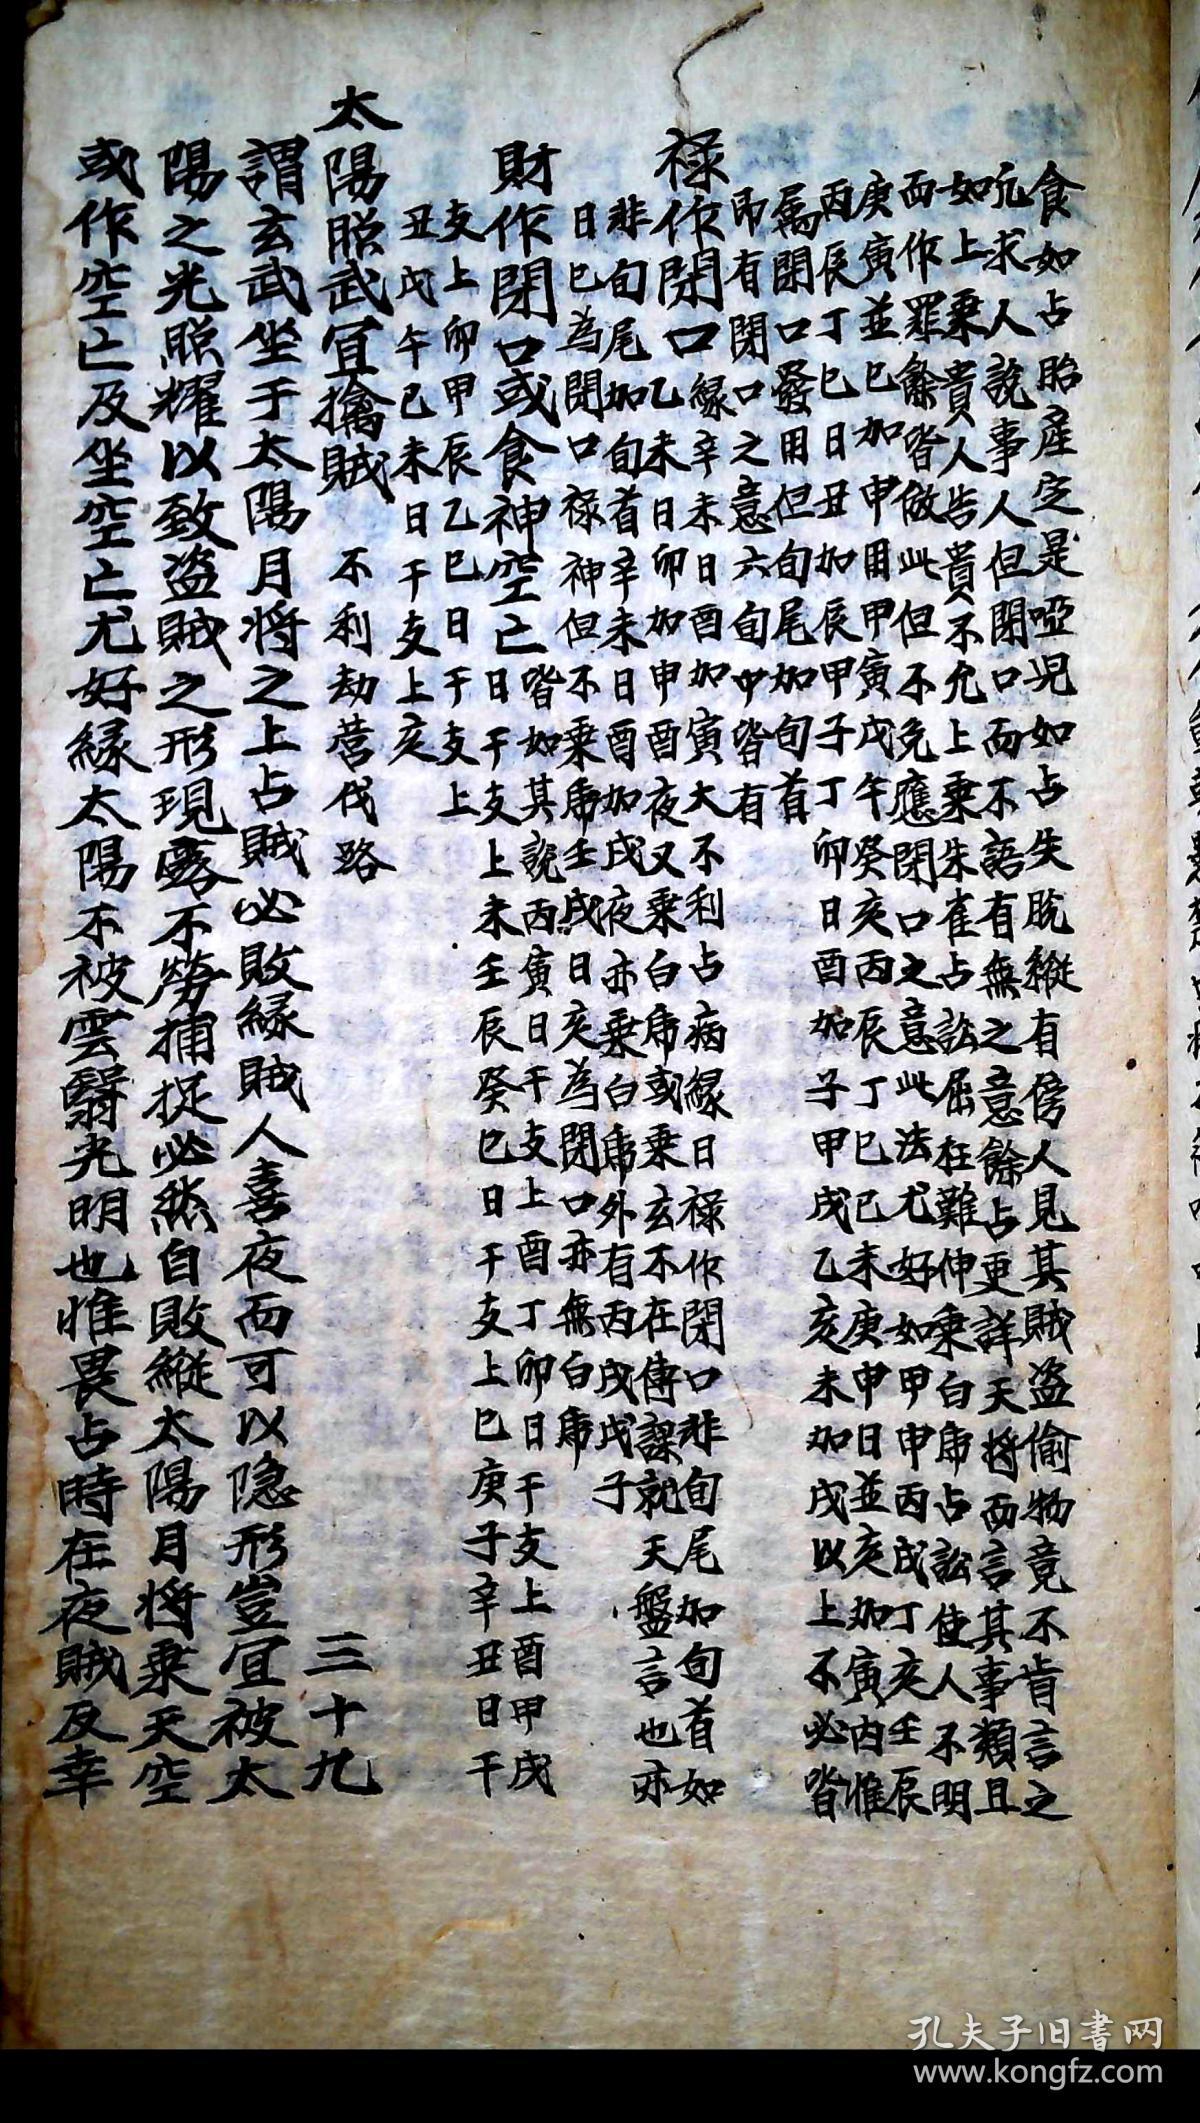 食如占胎產定是啞児如占失脫縱有傍人見其賊盜偷物竟不肯言之
吭求人說事人但閉口而不語有無之意餘占更詳天將而言其事類且
如上乗貴人告貴不允上乗朱雀占訟屈在難伸乗白虎占訟使人不明
而作罪餘皆倣此但不免應閉口之意此法尤好如甲申丙戌丁亥壬辰
庚寅並巳加申用甲寅戊午癸亥丙辰丁巳己未庚申日並亥加寅内惟
丙辰丁巳日丑加辰甲子丁卯日酉加子甲戌乙亥未加戌以上不必皆
属閉口發用但旬尾加旬首
即有閉口之意六旬中皆有
禄作閉口縁辛未日酉加寅大不利占病縁日禄作閉口非旬尾加旬首如
乙未日卯加申酉夜又乗白虎或乗玄不在傳課就天盤言也亦
非旬尾加旬首辛未日酉加戌夜亦乗白虎外有丙戌戊子
日巳為閉口禄神但不乗虎壬戌日亥為閉口亦無白虎
財作閉口或食神空亡皆如其說丙寅日干支上酉丁卯日干支上酉甲戌
日干支上未壬辰癸巳日干支上巳庚子辛丑日干
支上卯甲辰乙巳日干支上
丑戊午己未日干支上亥
太陽照武宜擒賊 不利劫营伐路 三十九
謂玄武坐于太陽月将之上占賊必敗縁賊人喜夜而可以隐形豈宜被太
陽之光照耀以致盜賊之形現露不勞捕捉必然自敗縱太陽月将乗天空
或作空亡及坐空亡尤好縁太陽不被雲翳光明也惟畏占時在夜賊反幸
孔夫子旧書网
www.kongfz.com